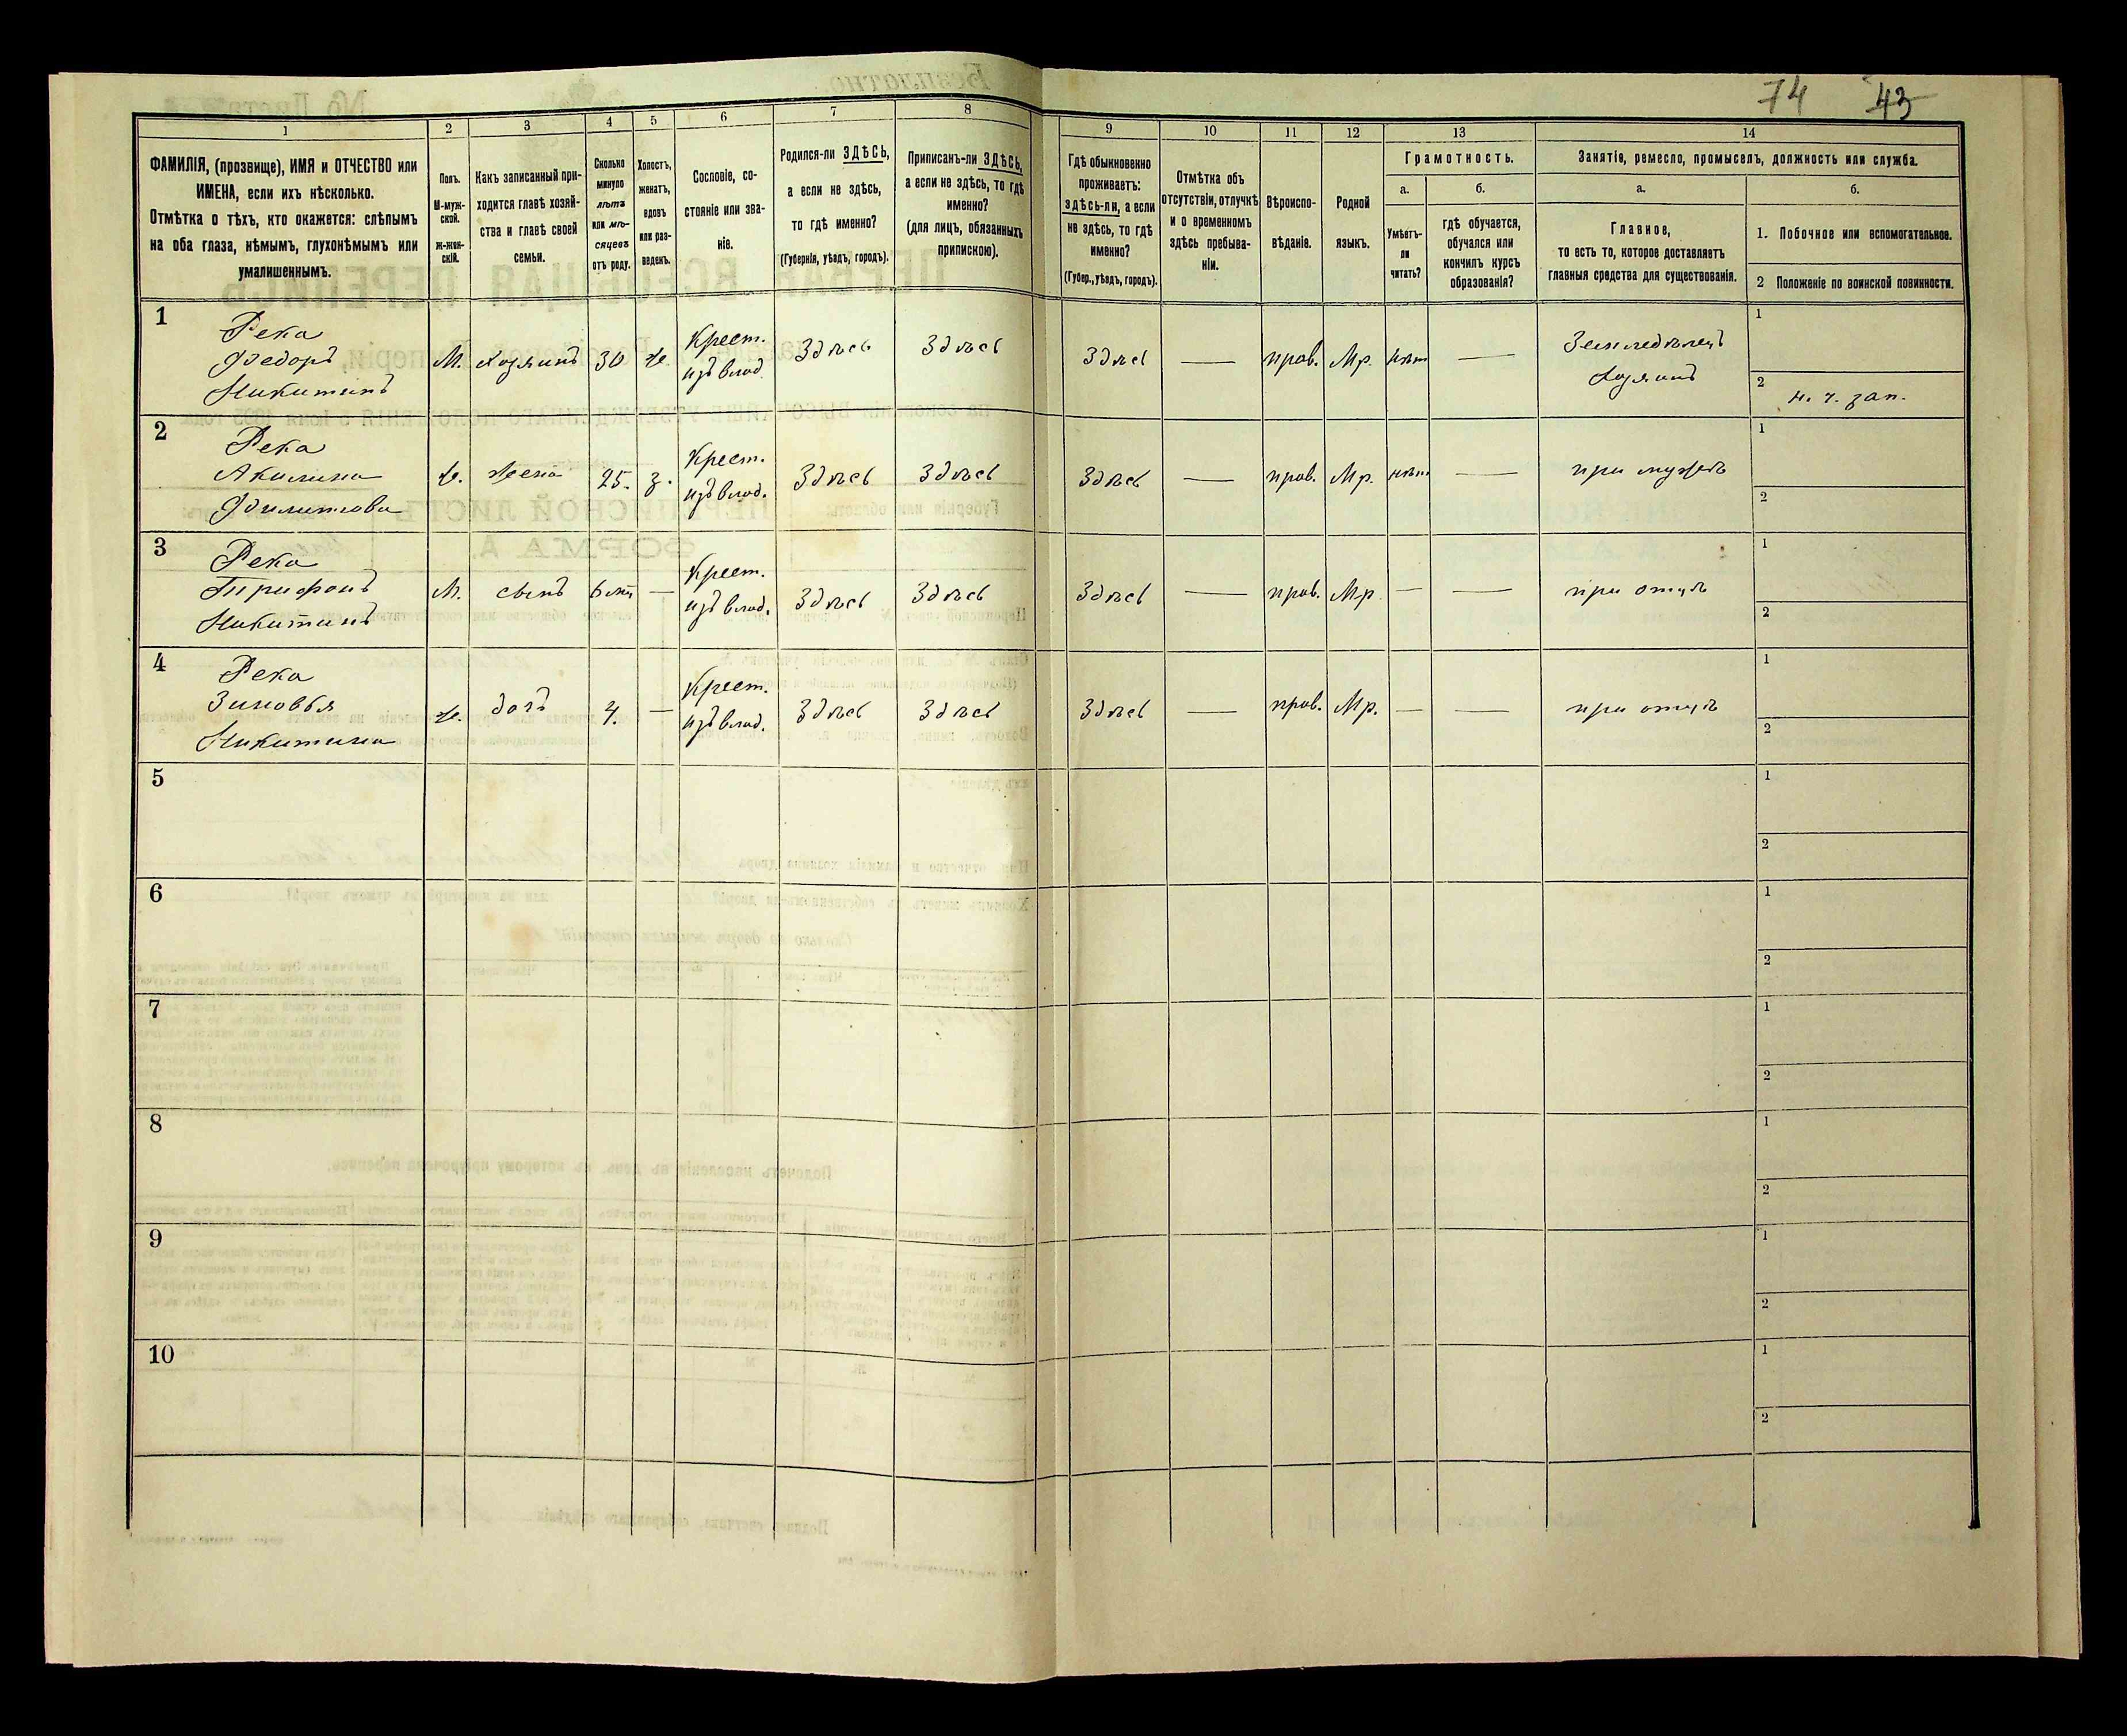 74 43
1 2 3 4 5 6 7 8 9 10 11 12 13 14
ФАМИЛІЯ, (прозвище), ИМЯ и ОТЧЕСТВО или
ИМЕНА, если ихъ нѣсколько.
Отмѣтка о тѣхъ, кто окажется: слѣпымъ
на оба глаза, нѣмымъ, глухонѣмымъ или
умалишеннымъ.
Полъ.
М-муж-
ской.
ж-жен-
скій.
Какъ записанный при-
ходится главѣ хозяй-
ства и главѣ своей
семьи.
Сколько
минуло
лѣтъ
или мѣ-
сяцевъ
отъ роду.
Холостъ,
женатъ,
вдовъ
или раз-
веденъ.
Сословіе, со-
стояніе или зва-
ніе.
Родился-ли ЗДѢСЬ,
а если не здѣсь,
то гдѣ именно?
(Губернія, уѣздъ, городъ).
Приписанъ-ли ЗДѢСЬ,
а если не здѣсь, то гдѣ
именно?
(для лицъ, обязанныхъ
припискою).
Гдѣ обыкновенно
проживаетъ:
здѣсь-ли, а если
не здѣсь, то гдѣ
именно?
(Губер., уѣздъ, городъ).
Отмѣтка объ
отсутствіи, отлучкѣ
и о временномъ
здѣсь пребыва-
ніи.
Вѣроиспо-
вѣданіе.
Родной
языкъ.
Грамотность.
а.
Умѣетъ-
ли
читать?
б.
гдѣ обучается,
обучался или
кончилъ курсъ
образованія?
Занятіе, ремесло, промыселъ, должность или служба.
а.
Главное,
то есть то, которое доставляетъ
главныя средства для существованія.
б.
1. Побочное или вспомогательное.
2 Положеніе по воинской повинности.
1
Река
Федоръ
Никитинъ
М. хозяинъ 30 ж.
Крест.
изъ влад.
Здѣсь Здѣсь Здѣсь — прав. Мр. нѣт —
Земледѣлецъ
хозяинъ
1
2 н. ч. зап.
2
Река
Акилина
Филиппова
ж. жена 25. з.
Крест.
изъ влад.
Здѣсь Здѣсь Здѣсь — прав. Мр. нѣт — при мужѣ
1
2
3
Река
Трифонъ
Никитинъ
М. сынъ —
Крест.
изъ влад.
Здѣсь Здѣсь Здѣсь — прав. Мр — — при отцѣ
1
2
4
Река
Зиновья
Никитина
ж. дочь 4. —
Крест.
изъ влад.
Здѣсь Здѣсь Здѣсь — прав. Мр. — — при отцѣ
1
2
5
1
2
6
1
2
7
1
2
8
1
2
9
1
2
10
1
2